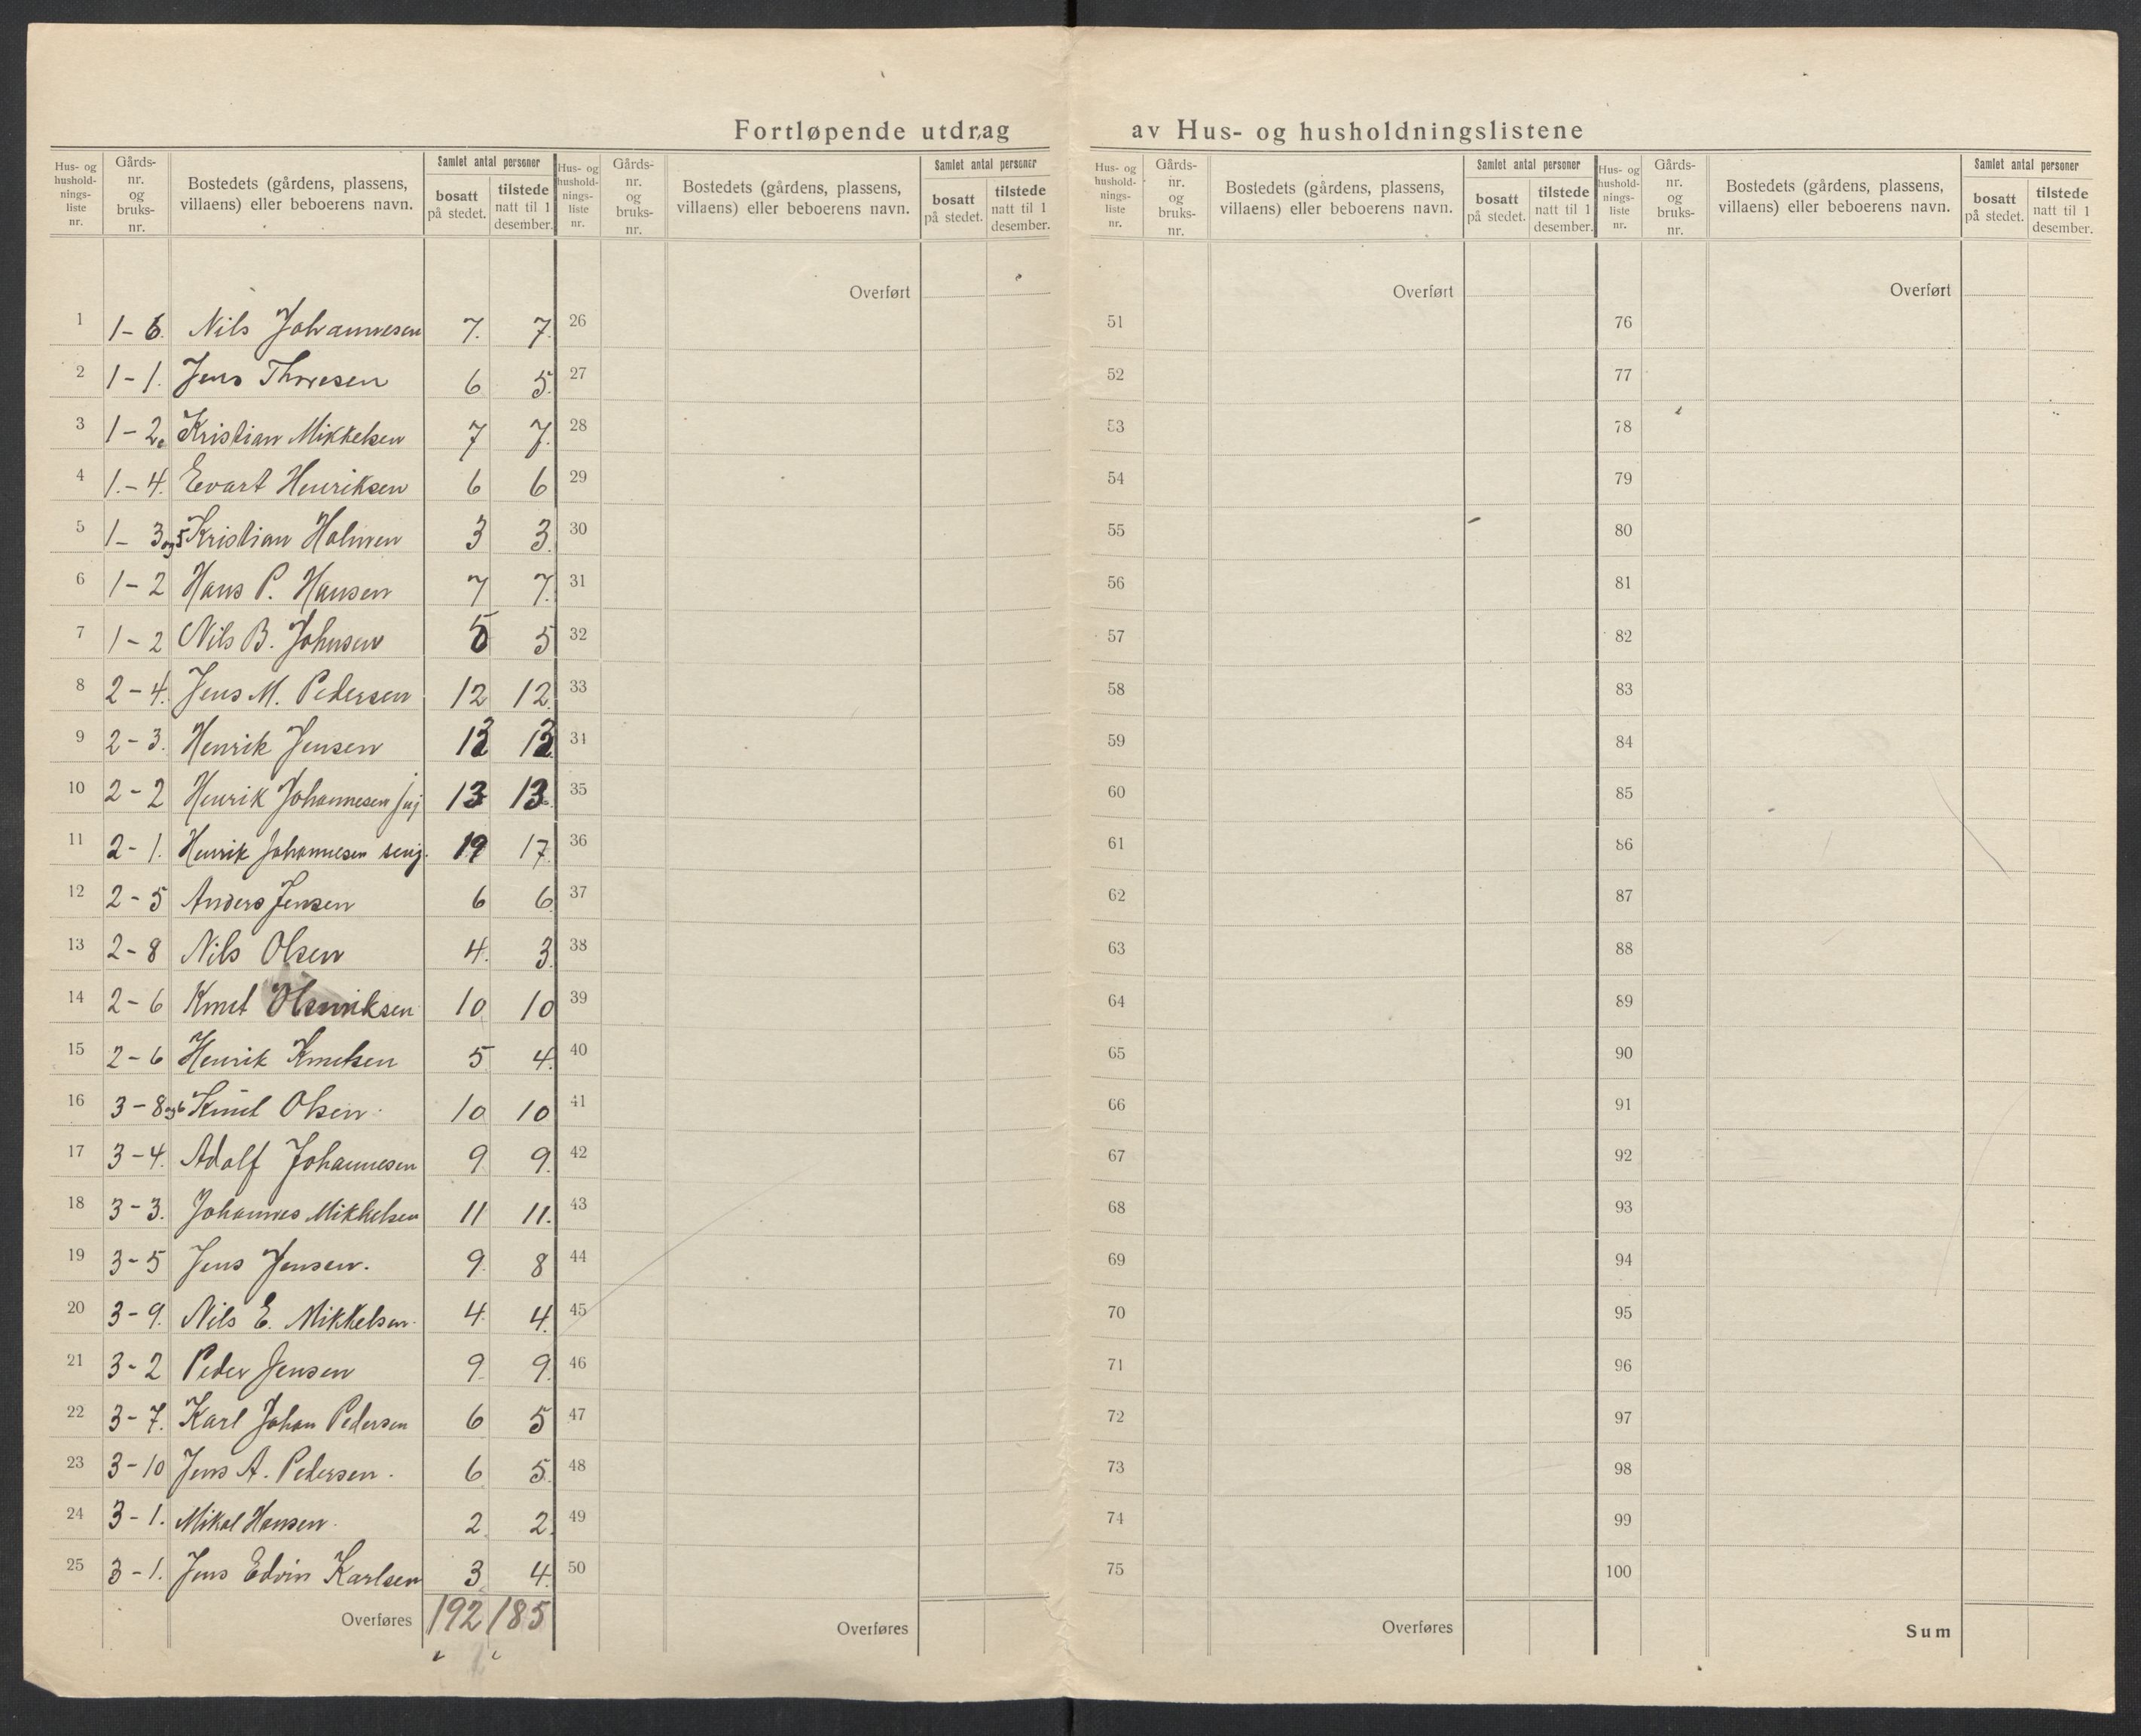 Fortløpende utdrag av Hus- og husholdningslistene
Hus- og hushold-nings-liste nr. Gårds-nr. og bruks-nr. Bostedets (gårdens, plassens, villaens) eller beboerens navn. Samlet antal personer bosatt på stedet. tilstede natt til 1 desember.
Hus- og hushold-nings-liste nr. Gårds-nr. og bruks-nr. Bostedets (gårdens, plassens, villaens) eller beboerens navn. Samlet antal personer bosatt på stedet. tilstede natt til 1 desember.
Hus- og hushold-nings-liste nr. Gårds-nr. og bruks-nr. Bostedets (gårdens, plassens, villaens) eller beboerens navn. Samlet antal personer bosatt på stedet. tilstede natt til 1 desember.
Hus- og hushold-nings-liste nr. Gårds-nr. og bruks-nr. Bostedets (gårdens, plassens, villaens) eller beboerens navn. Samlet antal personer bosatt på stedet. tilstede natt til 1 desember.
Overført Overført Overført
1 1-6. Nils Johannesen 7. 7. 26 51 76
2 1-1. Jens Thoresen 6 5. 27 52 77
3 1-2. Kristian Mikkelsen 7 7. 28 53 78
4 1.-4. Evart Henriksen 6 6 29 54 79
5 1- 3 og 5 Kristian Holmen 3 3. 30 55 80
6 1-2 Hans P. Hansen 7 7. 31 56 81
7 1-2 Nils B. Johnsen 5 5 32 57 82
8 2-4. Jens M. Pedersen 12 12. 33 58 83
9 2-3. Henrik Jensen 13 13 34 59 84
10 2-2 Henrik Johannesen junj 13 13. 35 60 85
11 2-1. Henrik Johannesen senj. 19 17. 36 61 86
12 2-5 Anders Jensen 6 6. 37 62 87
13 2-8 Nils Olsen 4. 3. 38 63 88
14 2-6 Knut Henriksen 10 10 39 64 89
15 2-6 Henrik Knutsen 5 4. 40 65 90
16 3-8 og 6 Knut Olsen. 10 10 41 66 91
17 3-4. Adolf Johannesen 9 9. 42 67 92
18 3-3. Johannes Mikkelsen 11 11. 43 68 93
19 3-5 Jens Jensen. 9. 8 44 69 94
20 3-9. Nils E. Mikkelsen. 4 4. 45 70 95
21 3-2 Peder Jensen 9. 9. 46 71 96
22 3-7. Karl Johan Pedersen 6 5 47 72 97
23 3-10 Jens A. Pedersen. 6 5. 48 73 98
24 3-1. Mikal Hansen. 2. 2. 49 74 99
25 3-1. Jens Edvin Karlsen 3 4. 50 75 100
Overføres 192 185 Overføres Overføres Sum